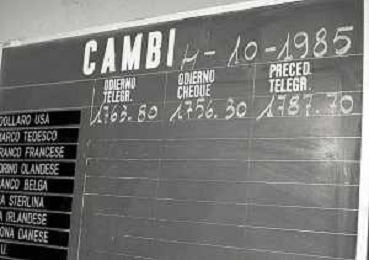 CAMBI 4-10-1985
ODIERNO TELEGR. ODIERNO CHEQUE PRECED. TELEGR.
DOLLARO USA 1763.80 1756.30 1787.70
MARCO TEDESCO
FRANCO FRANCESE
FIORINO OLANDESE
FRANCO BELGA
A STERLINA
A IRLANDESE
ONA DANESE